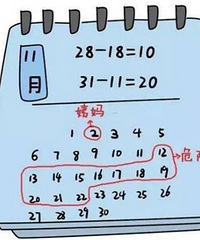 11月
28-18=10
31-11=20
姨妈
1 2 3 4 5
6 7 8 9 10 11 12
危
13 14 15 16 17 18 19
20 21 22 23 24 25 26
27 28 29 30